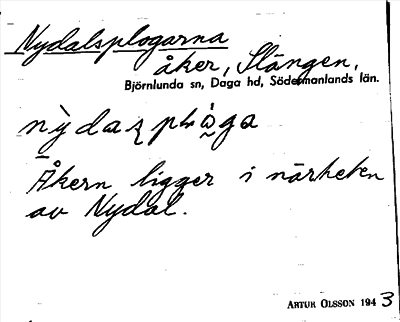 Nydalsplogarna
åker, Slängen,
Björnlunda sn, Daga hd, Södermanlands län.
Åkern ligger i närheten
av Nydal.
ARTUR OLSSON 1943